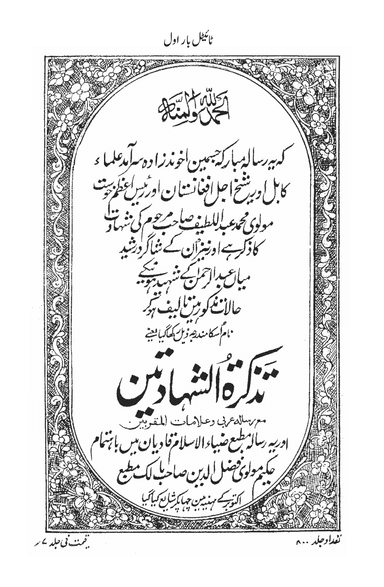 ٹائیٹل بار اول
الحمد للہ والمنۃ
کہ یہ رسالہ مبارکہ جسمین اخوندزادہ سرآمد علماء
کابل اور شیخ اجل افغانستان اور رئیس اعظم خوست
مولوی محمد عبداللطیف صاحب مرحوم کی شہادت
کا ذکر ہے اور نیز ان کے شاگرد رشید
میاں عبدالرحمٰن کے شہید ہونیکے
حالات مذکور ہیں تالیف ہوکر
نام اسکا مندرجہ ذیل رکھا گیا یعنے
تذکرۃ الشہادتین
مع رسالہ عربی و علامات المقربین
اور یہ رسالہ مطبع ضیاء الاسلام قادیان میں باہتمام
حکیم مولوی فضل الدین صاحب مالک مطبع
اکتوبر کے مہینہ میں چھاپکر شایع کیا گیا
تعداد جلد ۸۰۰
قیمت فی جلد ۷؍